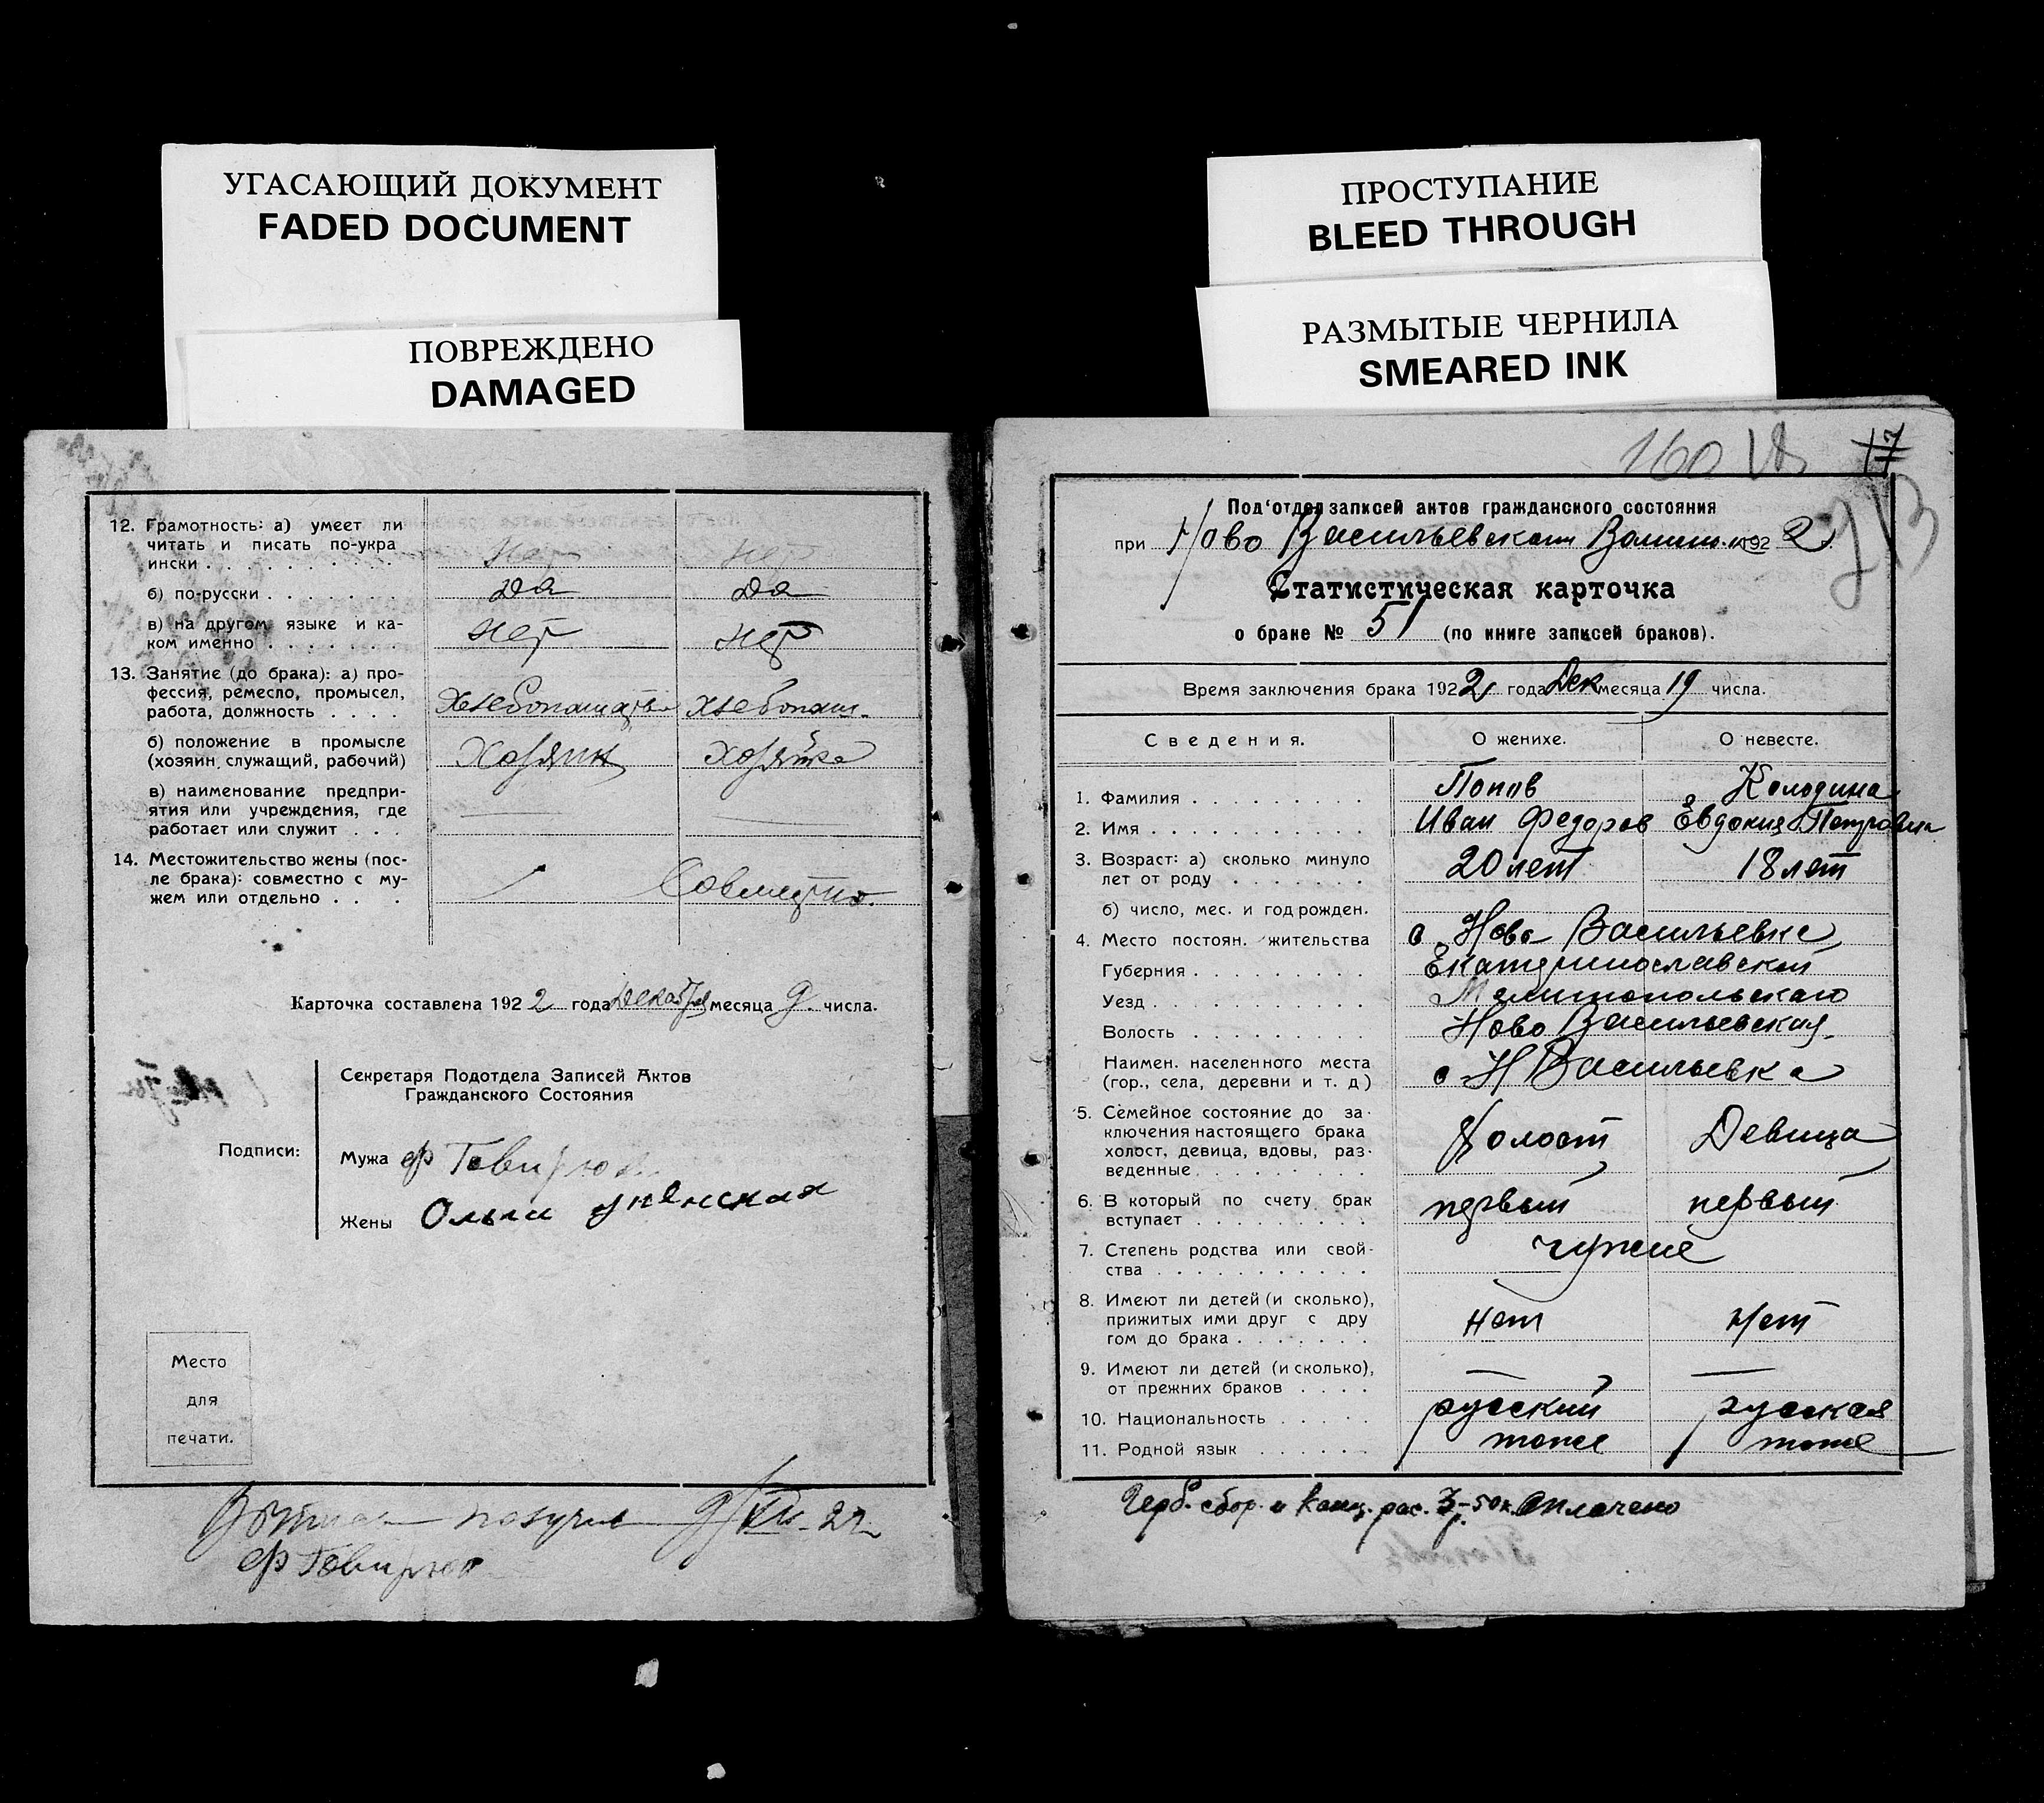 УГАСАЮЩИЙ ДОКУМЕНТ
FADED DOCUMENT
ПОВРЕЖДЕНО
DAMAGED
12. Грамотность: а) умеет ли
читать и писать по-укра
ински . . . нет нет
б) по-русски . . . да да
в) на другом языке и ка-
ком именно . . . нет нет
13. Занятие (до брака): а) про-
фессия, ремесло, промысел,
работа, должность . . . . хлебопаш.
б) положение в промысле
(хозяин, служащий, рабочий) Хозяин Хозяйка
в) наименование предпри-
ятия или учреждения, где
работает или служит . . .
14. Местожительство жены (пос-
ле брака): совместно с му-
жем или отдельно . . . Совместно.
Карточка составлена 1922 года Декабря месяца 9 числа.
Секретаря Подотдела Записей Актов
Гражданского Состояния
Подписи:
Мужа
Жены Ольга
Место
для
печати.
получил 9/XII-22
ПРОСТУПАНИЕ
BLEED THROUGH
РАЗМЫТЫЕ ЧЕРНИЛА
SMEARED INK
160 18 17
Под'отдел записей актов гражданского состояния
при Ново Васильевском 1922
Статистическая карточка
о браке № 51 (по книге записей браков).
Время заключения брака 1922 года Дек месяца 19 числа.
Сведения. О женихе. О невесте.
1. Фамилия . . . Попов Колодина
2. Имя . . . Иван Федоров Евдокия Петровна
3. Возраст: а) сколько минуло
лет от роду . . . 20 лет 18 лет
б) число, мес. и год рожден.
4. Место постоян. жительства с. Ново Васильевке
Губерния . . . Екатеринославской
Уезд . . . Мелитопольскаго
Волость . . . Ново Васильевская
Наимен. населенного места
(гор., села, деревни и т. д) с Н Васильевка
5. Семейное состояние до за-
ключения настоящего брака
холост, девица, вдовы, раз-
веденные . . . Холост Девица
6. В который по счету брак
вступает . . . первый первый
7. Степень родства или свой-
ства . . . чужие
8. Имеют ли детей (и сколько),
прижитых ими друг с дру
гом до брака . . . нет Нет
9. Имеют ли детей (и сколько),
от прежних браков . . . . — —
10. Национальность . . . русский русская
11. Родной язык . . . тоже тоже
Герб. сбор. и канц. рас. 3 р.-50к. Оплачено